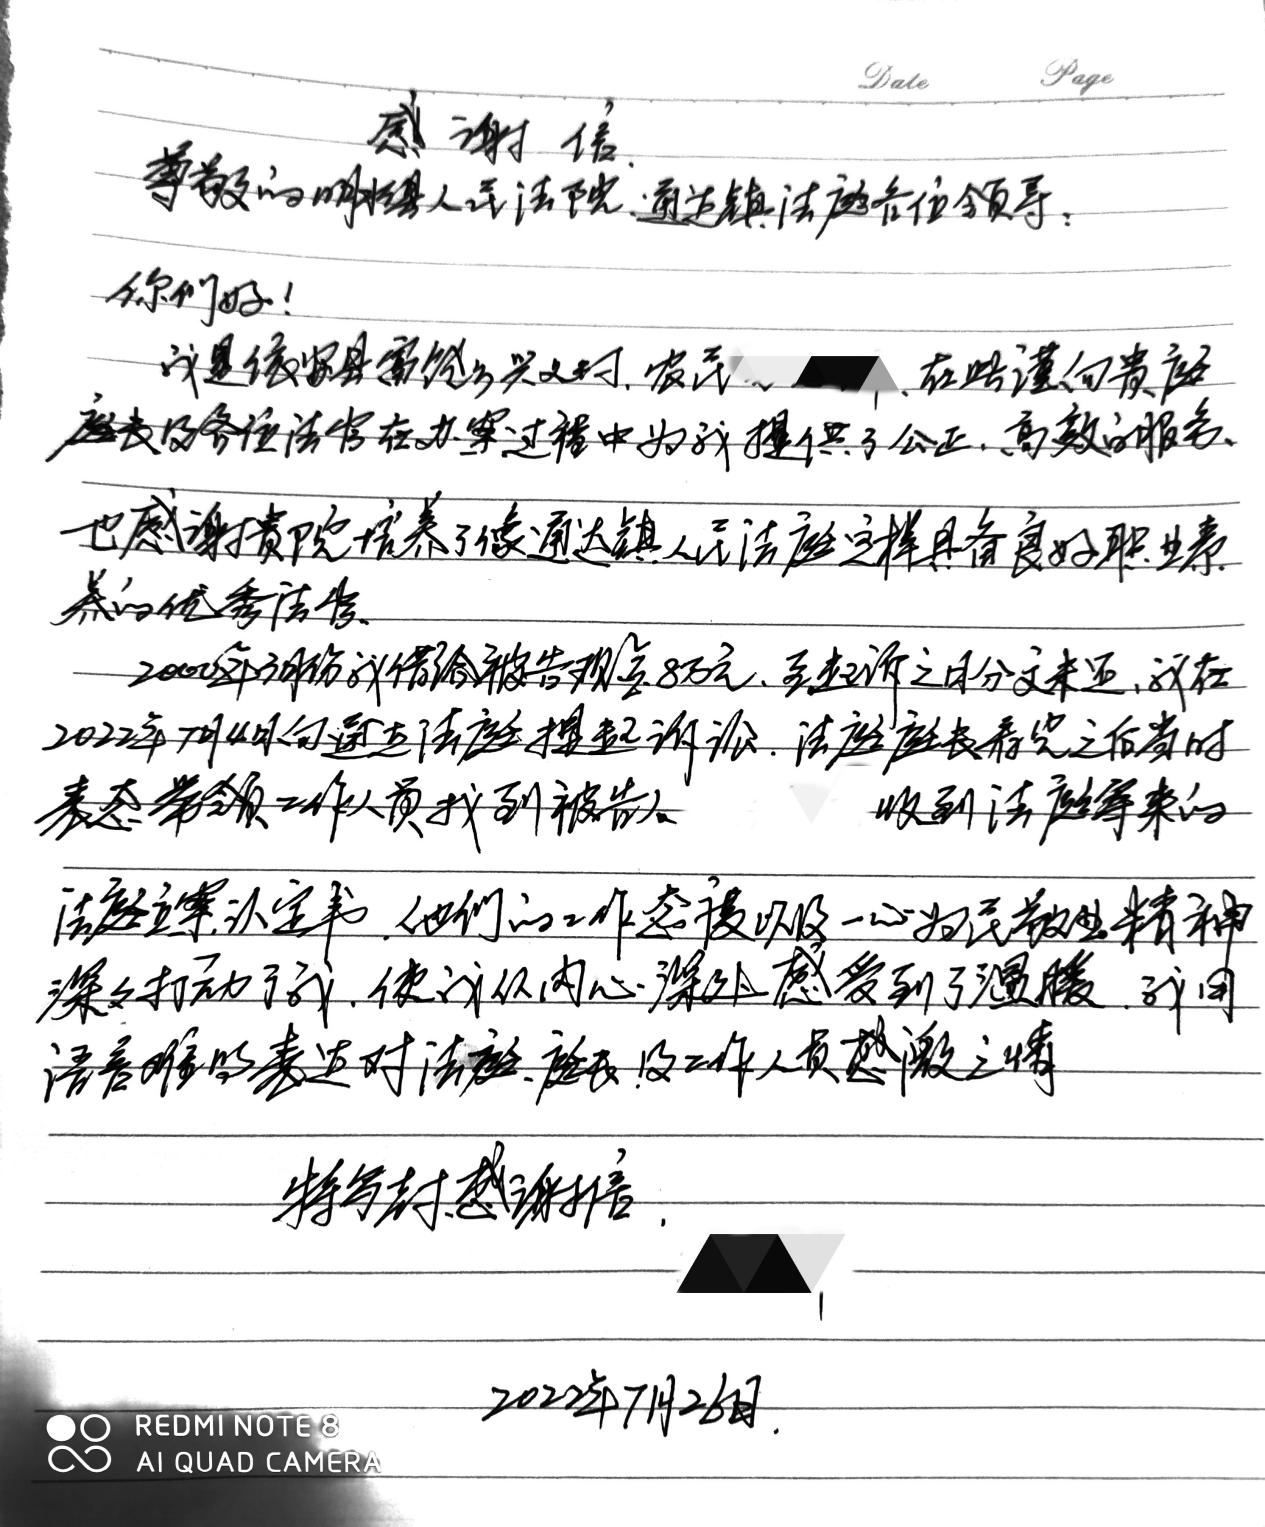 Date Page
感谢信.
尊敬的明水县人民法院、通达镇法庭各位领导:
你们好!
我是依安县富饶乡兴义村、农民、在此谨向贵庭
庭长及各位法官在办案过程中为我提供了公正、高效的服务、
也感谢贵院培养了像通达镇人民法庭这样具备良好职业素
养的优秀法官、
年3月份我借给被告现金8万元、至起诉之日分文未还、我在
2022年7月4日向通达法庭提起诉讼、法庭庭长看完之后当时
表态带领工作人员找到被告人 收到法庭寄来的
法庭立案认定书、他们的工作态度以及一心为民敬业精神
深深打动了我、使我从内心深处感受到了温暖、我用
语言难以表达对法庭、庭长及工作人员感激之情
特写封感谢信.
2022年7月26日.
REDMI NOTE 8
AI QUAD CAMERA